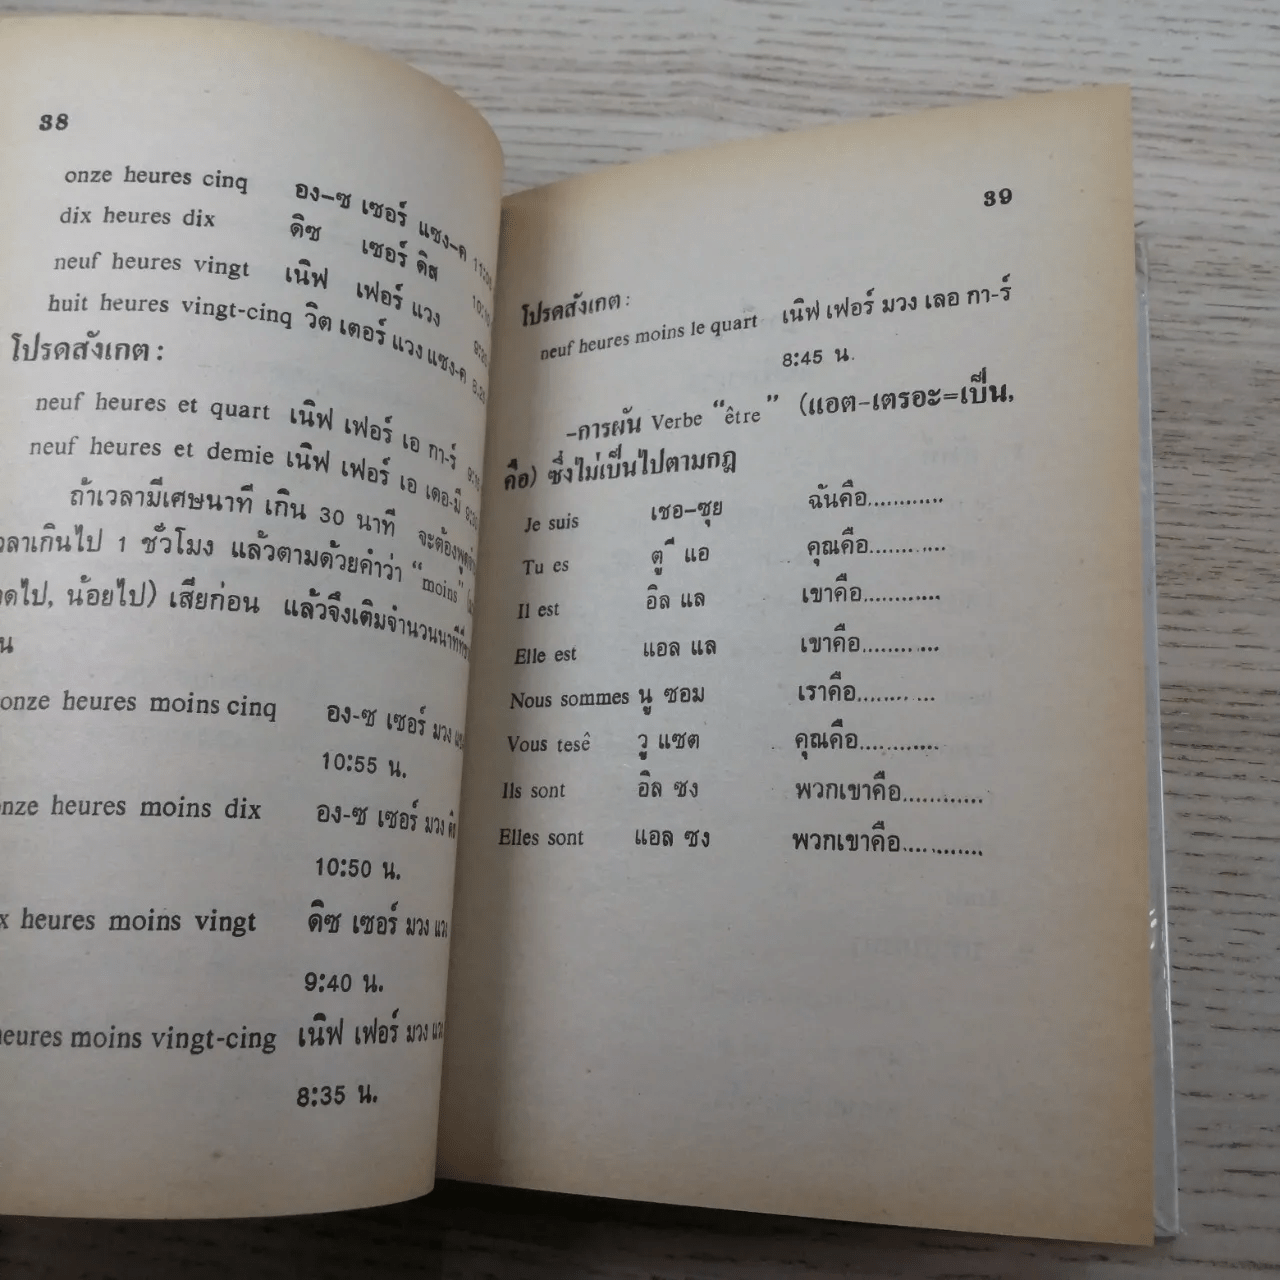 38
onze heures cinq อง-ซ เซอร์ แซง-ค
dix heures dix ดิซ เซอร์ ดิส
neuf heures vingt เนิฟ เฟอร์ แวง
huit heures vingt-cinq วิต เตอร์ แวง แซง-ค
โปรดสังเกต :
neuf heures et quart เนิฟ เฟอร์ เอ กา-ร์
neuf heures et demie เนิฟ เฟอร์ เอ เดอ-มี
ถ้าเวลามีเศษนาที เกิน 30 นาที
เกินไป 1 ชั่วโมง แล้วตามด้วยคำว่า “moins”
น้อยไป) เสียก่อน แล้วจึงเติมจำนวนนาที
onze heures moins cinq อง-ซ เซอร์ มวง
10:55 น.
heures moins dix อง-ซ เซอร์ มวง
10:50 น.
heures moins vingt ดิซ เซอร์ มวง
9:40 น.
moins vingt-cing เนิฟ เฟอร์ มวง
8:35 น.
39
โปรดสังเกต :
neuf heures moins le quart เนิฟ เฟอร์ มวง เลอ กา-ร์
8:45 น.
-การผัน Verbe “être” (แอต-เตรอะ=เป็น,
คือ) ซึ่งไม่เป็นไปตามกฎ
Je suis เชอ-ซุย ฉันคือ............
Tu es ตู ี แอ คุณคือ............
Il est อิล แล เขาคือ............
Elle est แอล แล เขาคือ............
Nous sommes นู ซอม เราคือ............
Vous tesê วู แซต คุณคือ............
Ils sont อิล ซง พวกเขาคือ............
Elles sont แอล ซง พวกเขาคือ............